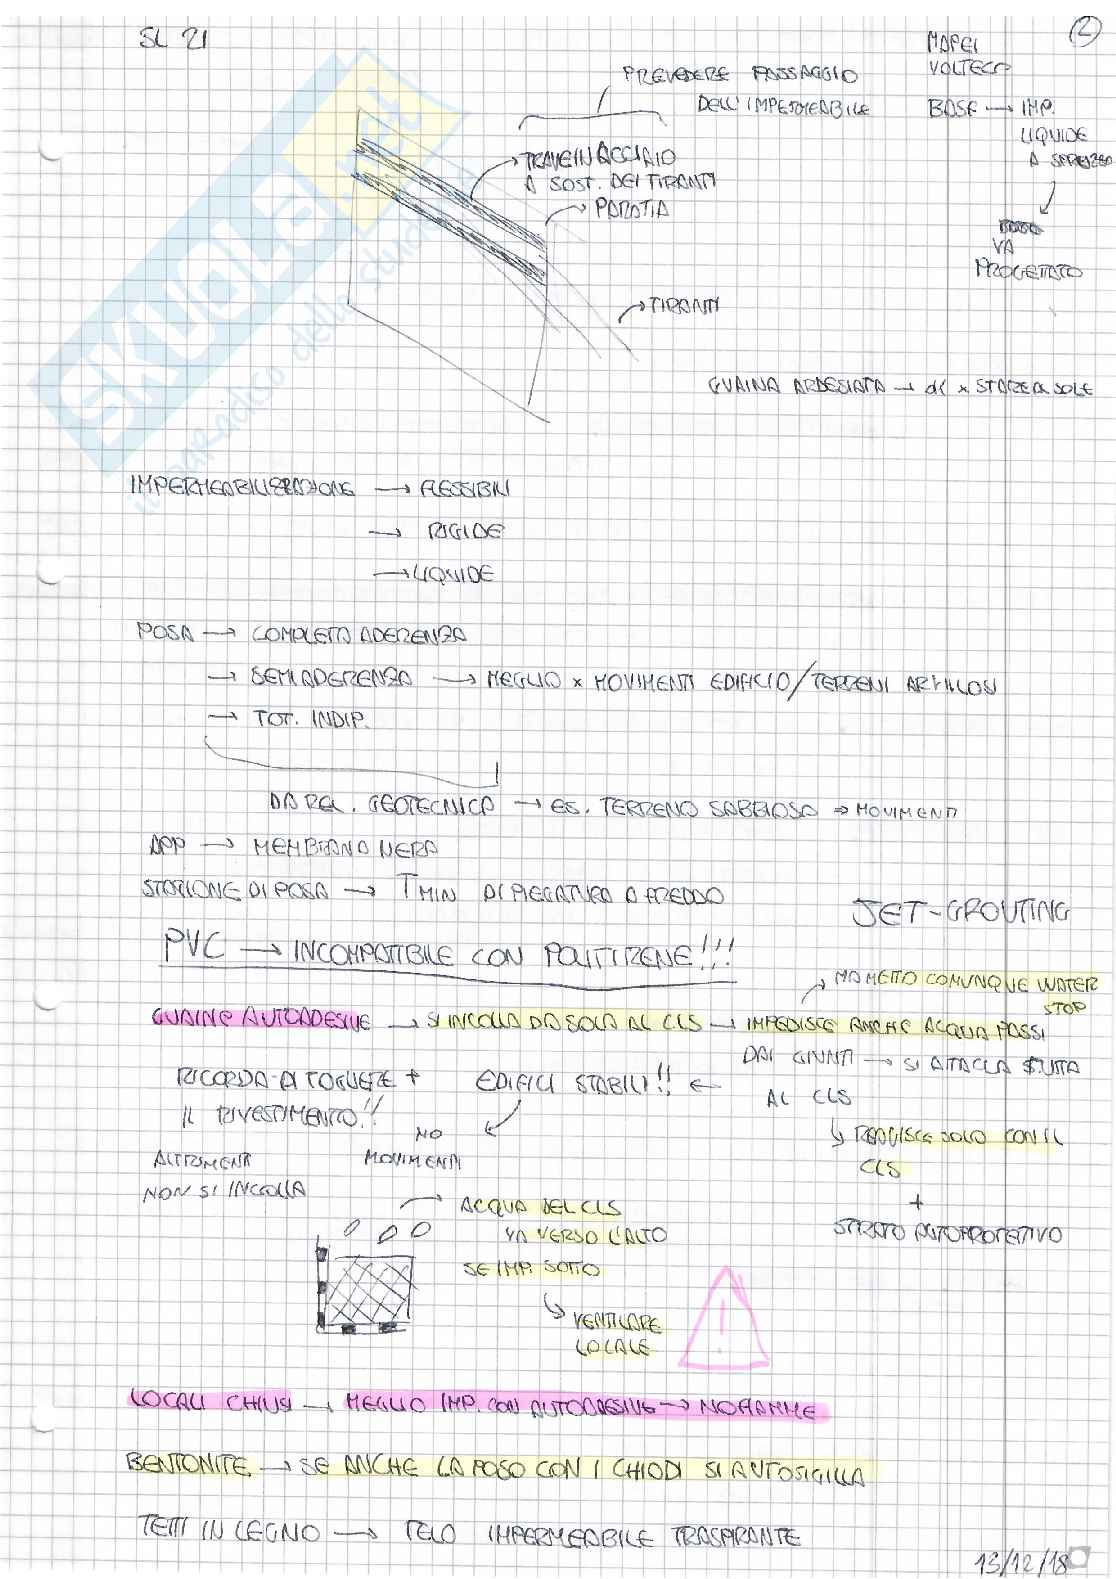 SL 21
2
MAPEI
VOLTECO
BASF → IMP.
LIQUIDE
A SPRUZZO
VA
PROGETTATO
PREVEDERE PASSAGGIO
DELL'IMPERMEABILE
TRAVE IN ACCIAIO
A SOST. DEI TIRANTI
PARATIA
TIRANTI
GUAINA ARDESIATA → x STARE AL SOLE
SKUOLA.net
il paradiso dello studente
IMPERMEABILIZZAZIONE → FLESSIBILI
→ RIGIDE
→ LIQUIDE
POSA → COMPLETA ADERENZA
→ SEMIADERENZA → MEGLIO x MOVIMENTI EDIFICIO/TERRENI ARGILLOSI
→ TOT. INDIP.
DA REL. GEOTECNICA → ES. TERRENO SABBIOSO ⇒ MOVIMENTI
APP → MEMBRANA NERA
STAGIONE DI POSA → T MIN DI PIEGATURA A FREDDO
JET-GROUTING
PVC → INCOMPATIBILE CON POLITIRENE!!!
MA METTO COMUNQUE WATER
STOP
GUAINE AUTOADESIVE → SI INCOLLA DA SOLA AL CLS → IMPEDISCE ANCHE ACQUA PASSI
DAI GIUNTI → SI ATTACCA TUTTA
AL CLS
RICORDA DI TOGLIERE + EDIFICI STABILI!! ←
IL RIVESTIMENTO!!
NO
MOVIMENTI
ALTRIMENTI
NON SI INCOLLA
REAGISCE SOLO CON IL
CLS
+
STRATO AUTOPROTETTIVO
ACQUA DEL CLS
VA VERSO L'ALTO
SE IMP. SOTTO
VENTILARE
LOCALE
!
LOCALI CHIUSI → MEGLIO IMP. CON AUTOADESIVE → NO FIAMME
BENTONITE → SE ANCHE LA POSO CON I CHIODI SI AUTOSIGILLA
TETTI IN LEGNO → TELO IMPERMEABILE TRASPIRANTE
13/12/18